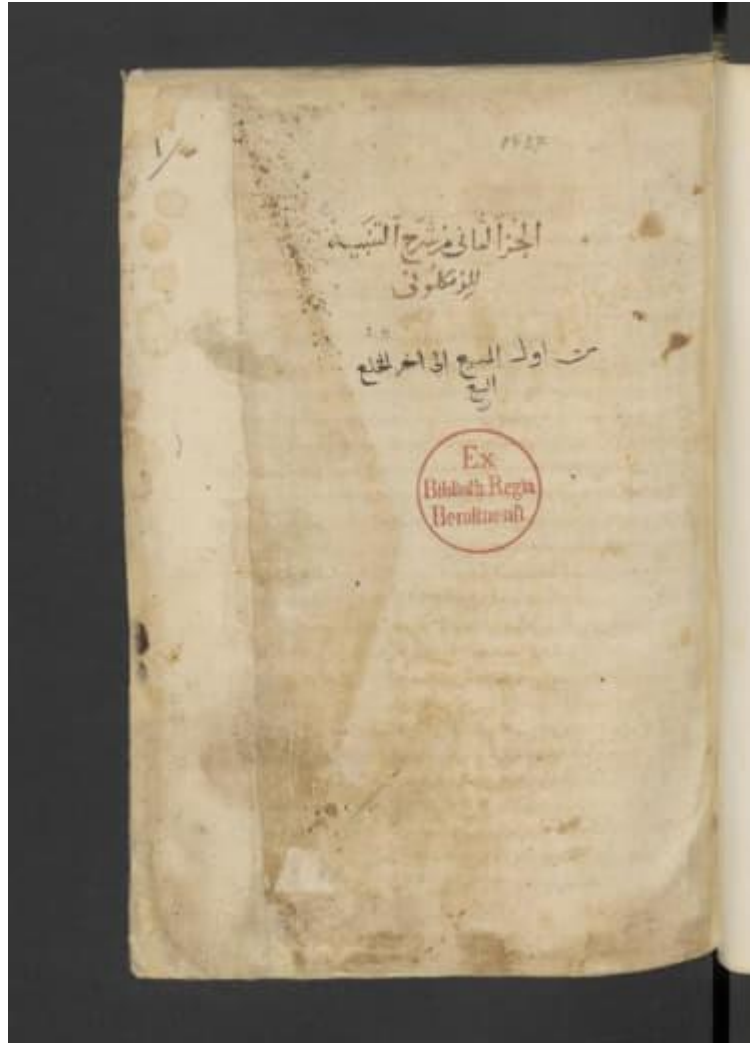 الجزء الثاني من شرح التنبيه
للزنكلوني
من اول البيع الى اخر الخلع
البيع
Ex
Biblioth. Regia
Berolinenſi.